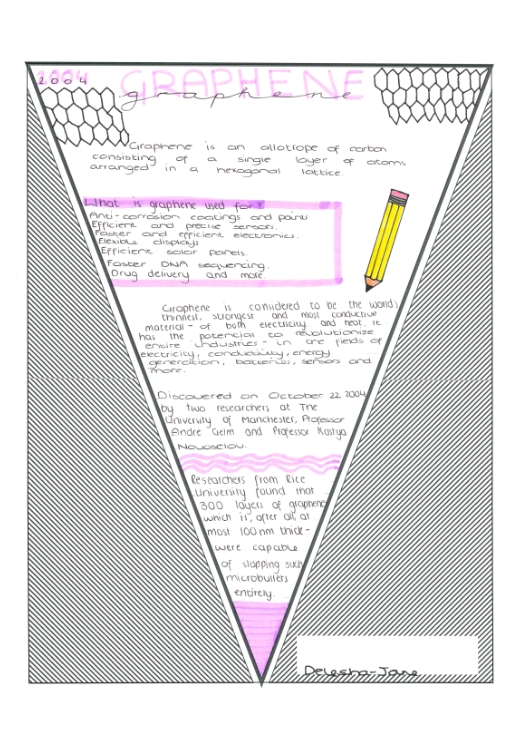 2004
GRAPHENE
graphene
Graphene is an allotrope of carbon
consisting of a single layer of atoms
arranged in a hexagonal lattice.
What is graphene used for?
Anti-corrosion coatings and paints
Efficient and precise sensors.
Faster and efficient electronics.
Flexible displays
Efficient solar panels.
Faster DNA sequencing.
Drug delivery and more.
Graphene is considered to be the worlds
thinnest, strongest and most conductive
material - of both electricity and heat, it
has the potential to revolutionize
entire industries - in the fields of
electricity, conductivity, energy
generation, batteries, sensors and
more.
Discovered on October 22 2004
by two researchers at The
University of Manchester, Professor
Andre Geim and Professor Kostya
Novoselov.
Researchers from Rice
University found that
300 layers of graphene
which is, after all, at
most 100nm thick -
were capable
of stopping such
microbullets
entirely.
Delesha-Jane